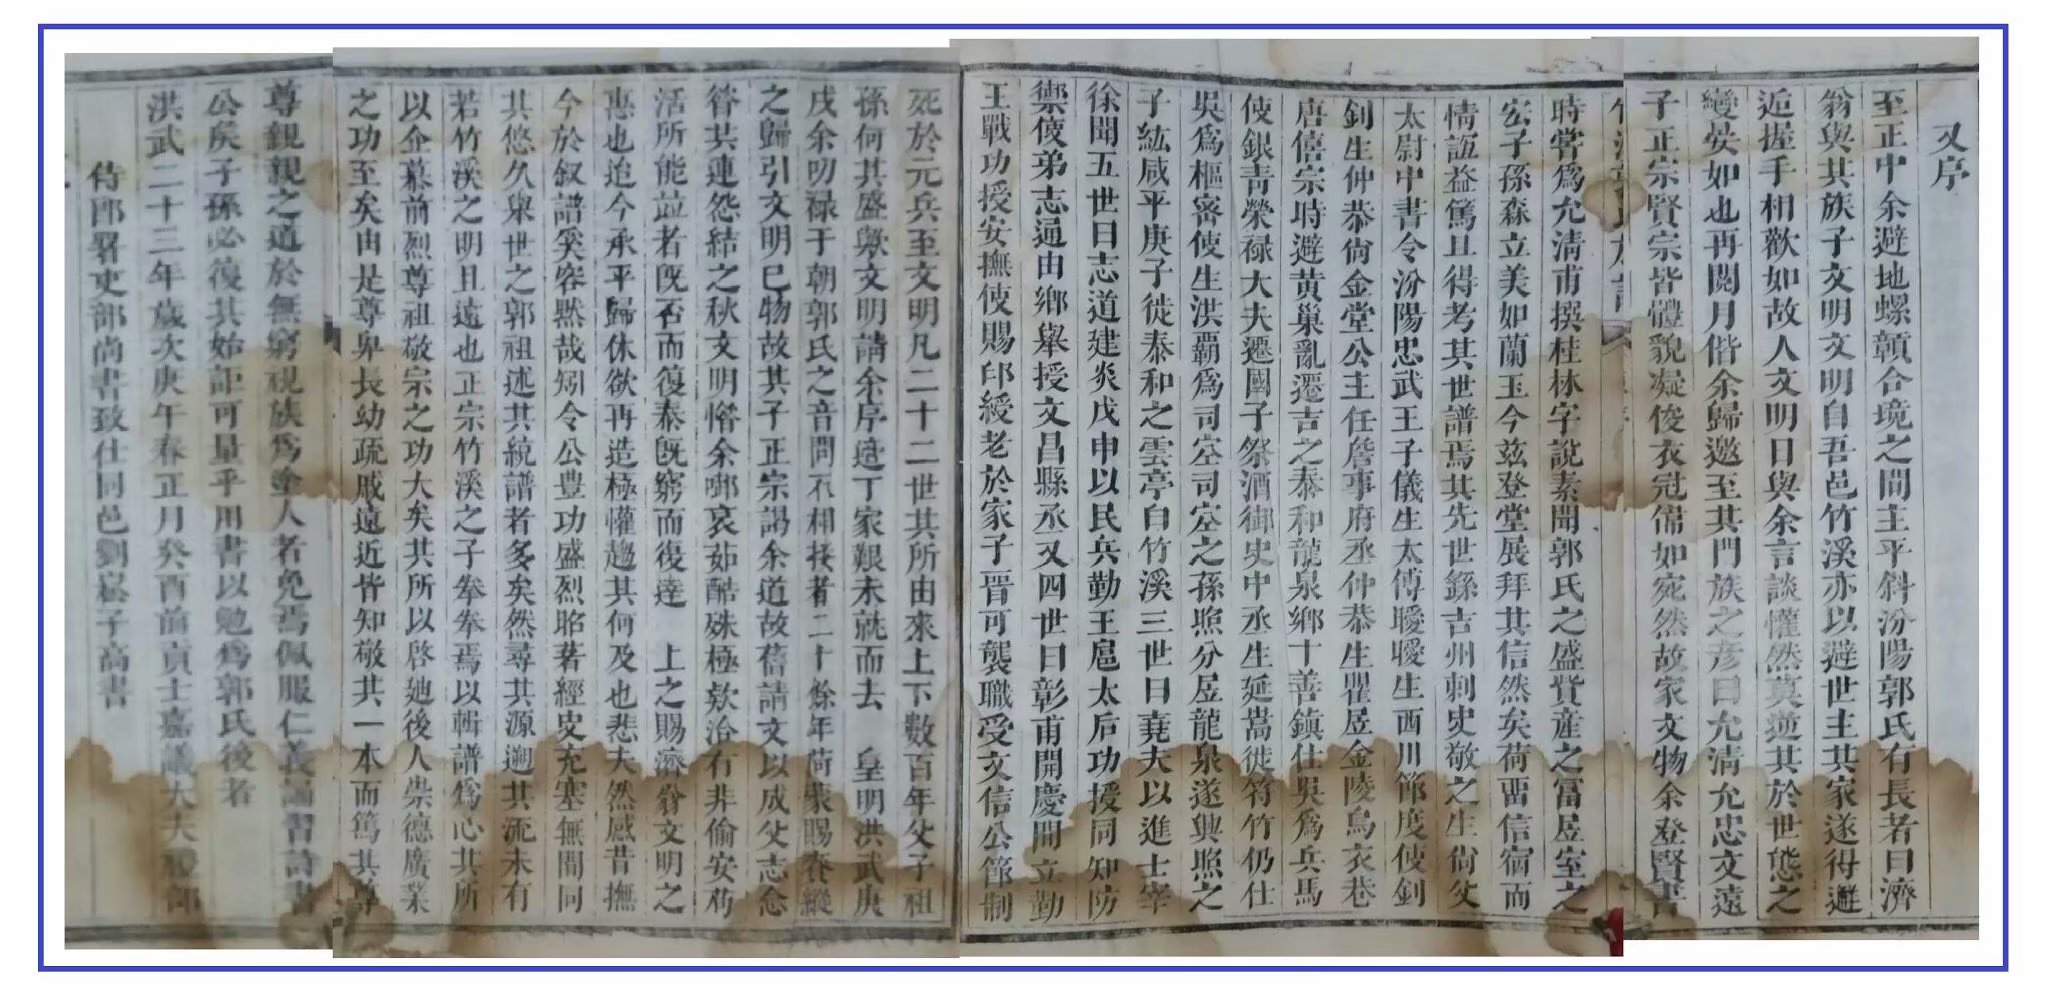 又序
至正中余避地螺贛合境之間主平斜汾陽郭氏有長者曰濟
翁與其族子文明文明自吾邑竹溪亦以避世主其家遂得邂
逅握手相歡如故人文明日與余言談懽然莫逆其於世態之
變晏如也再閱月偕余歸邀至其門族之彦曰允清允忠文遠
子正宗賢宗皆體貌凝俊衣冠偹如宛然故家文物余登賢書
時嘗爲允清甫撰桂林字說素聞郭氏之盛貲産之富居室之
宏子孫森立美如蘭玉今兹登堂展拜其信然矣荷畱信宿而
情誼益篤且得考其世譜焉其先世繇吉州刺史敬之生尙父
太尉中書令汾陽忠武王子儀生太傅曖曖生西川節度使釗
釗生仲恭尙金堂公主任詹事府丞仲恭生瞿居金陵烏衣巷
唐僖宗時避黄巢亂遷吉之泰和龍泉鄉十善鎮仕吳爲兵馬
使銀青榮禄大夫遷國子祭酒御史中丞生延嵩徙符竹仍仕
吳爲樞密使生洪覇爲司空司空之孫照分居龍泉遂興照之
子紘咸平庚子徙泰和之雲亭白竹溪三世曰堯夫以進士宰
徐聞五世曰志道建炎戊申以民兵勤王扈太后功授同知防
禦使弟志通由鄉舉授文昌縣丞又四世曰彰甫開慶間立勤
王戰功授安撫使賜印綬老於家子晋可襲職受文信公節制
死於元兵至文明凡二十二世其所由來上下數百年父子祖
孫何其盛歟文明請余序適丁家艱未就而去 皇明洪武庚
戌余叨禄于朝郭氏之音問不相接者二十餘年荷蒙賜養縱
之歸引文明已物故其子正宗謁余道故舊請文以成父志念
昝其連怨結之秋文明偕余啣哀茹酷殊極欵洽有非偷安苟
活所能竝者既否而復泰既窮而復達 上之賜濟翁文明之
惠也迨今承平歸休欲再造極懽趨其何及也悲夫然感昔撫
今於叙譜奚容默哉矧令公豊功盛烈昭著經史充塞無間同
其悠久與世之郭祖述其統譜者多矣然尋其源遡其流未有
若竹溪之明且遠也正宗竹溪之子拳拳焉以輯譜爲心其所
以企慕前烈尊祖敬宗之功大矣其所以啓廸後人崇德廣業
之功至矣由是尊卑長幼疏戚遠近皆知敬其一本而篤其尊
尊親親之道於無窮視族爲塗人者免焉佩服仁義誦習詩書
公矦子孫必復其始詎可量乎用書以勉爲郭氏後者
洪武二十三年歲次庚午春正月癸酉前貢士嘉議大夫禮部
侍郎署吏部尚書致仕同邑劉崧子高書